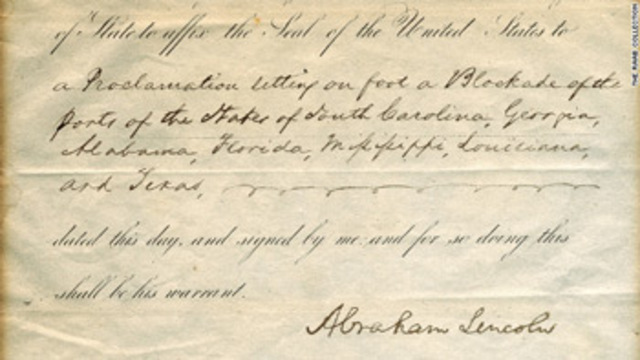 of State to affix the Seal of the United States to
a Proclamation setting on foot a Blockade of the
Ports of the States of South Carolina, Georgia,
Alabama, Florida, Mississippi, Louisiana,
and Texas,
dated this day, and signed by me: and for so doing this
shall be his warrant.
Abraham Lincoln
THE RAAB COLLECTION